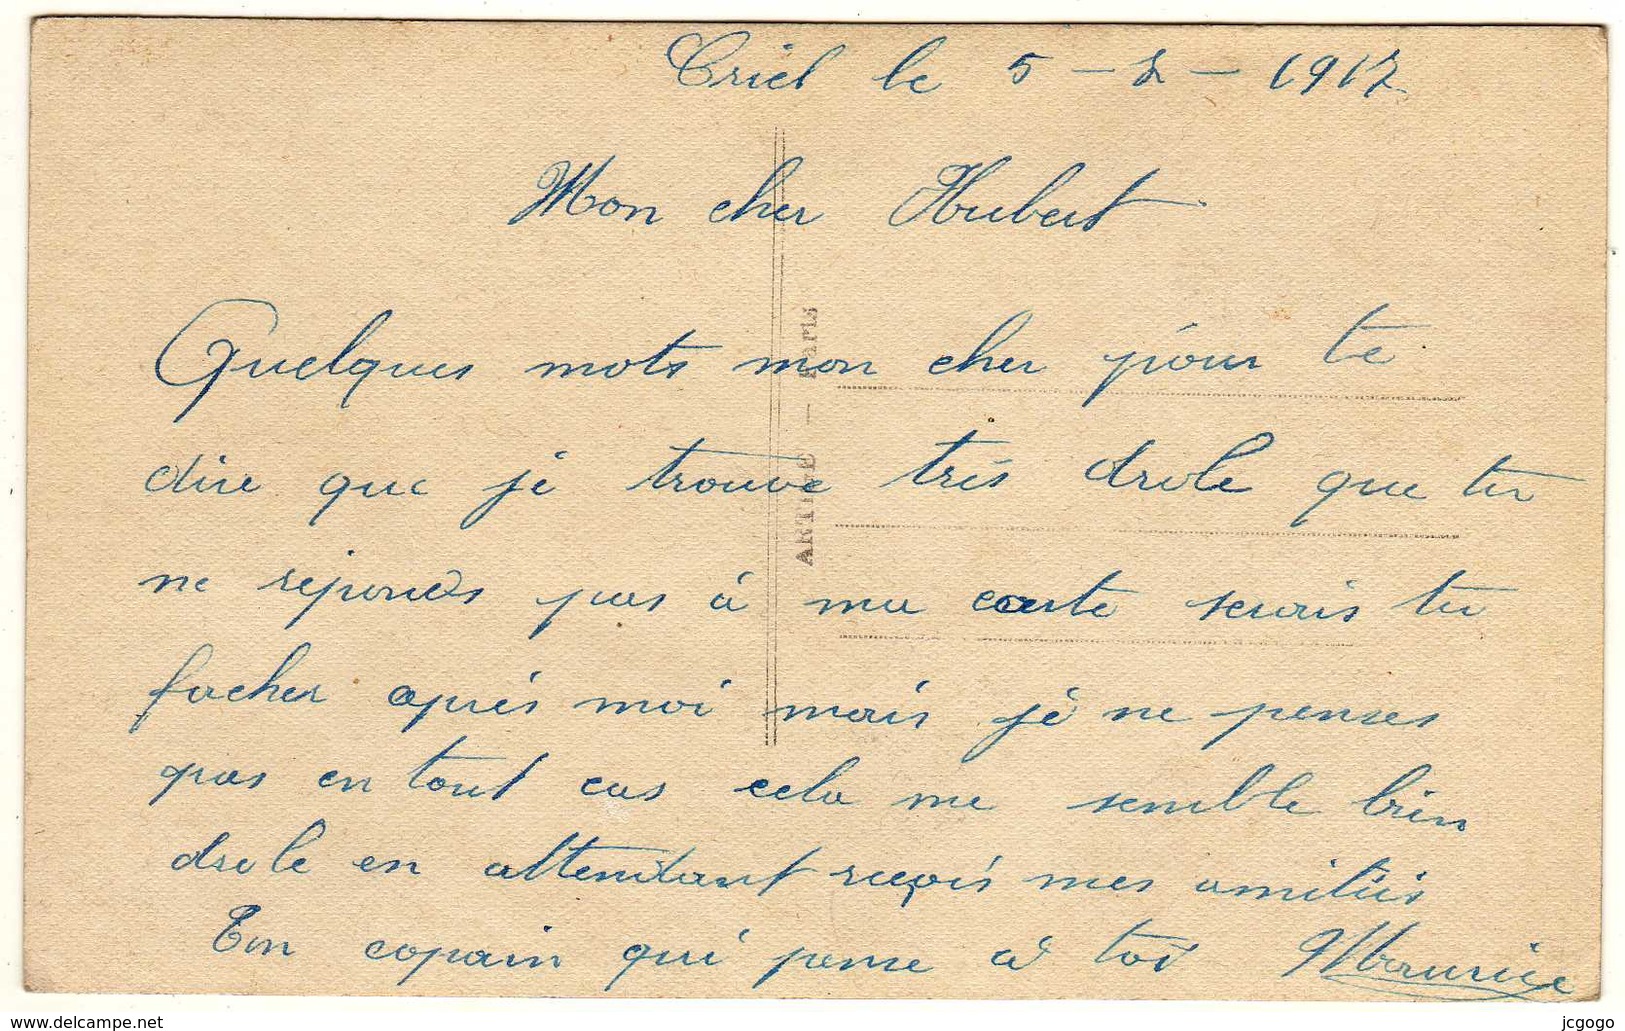 Criel le 5 - 2 - 1917
Mon cher Hubert
Quelques mots mon cher pour te
dire que je trouve très drole que tu
ne réponds pas à ma carte serais tu
facher après moi mais je ne penses
pas en tout cas cela me semble bien
drole en attendant reçois mes amitiés
Ton copain qui pense à toi Maurice
ARTIGE — Paris
delcampe.net
jcgogo